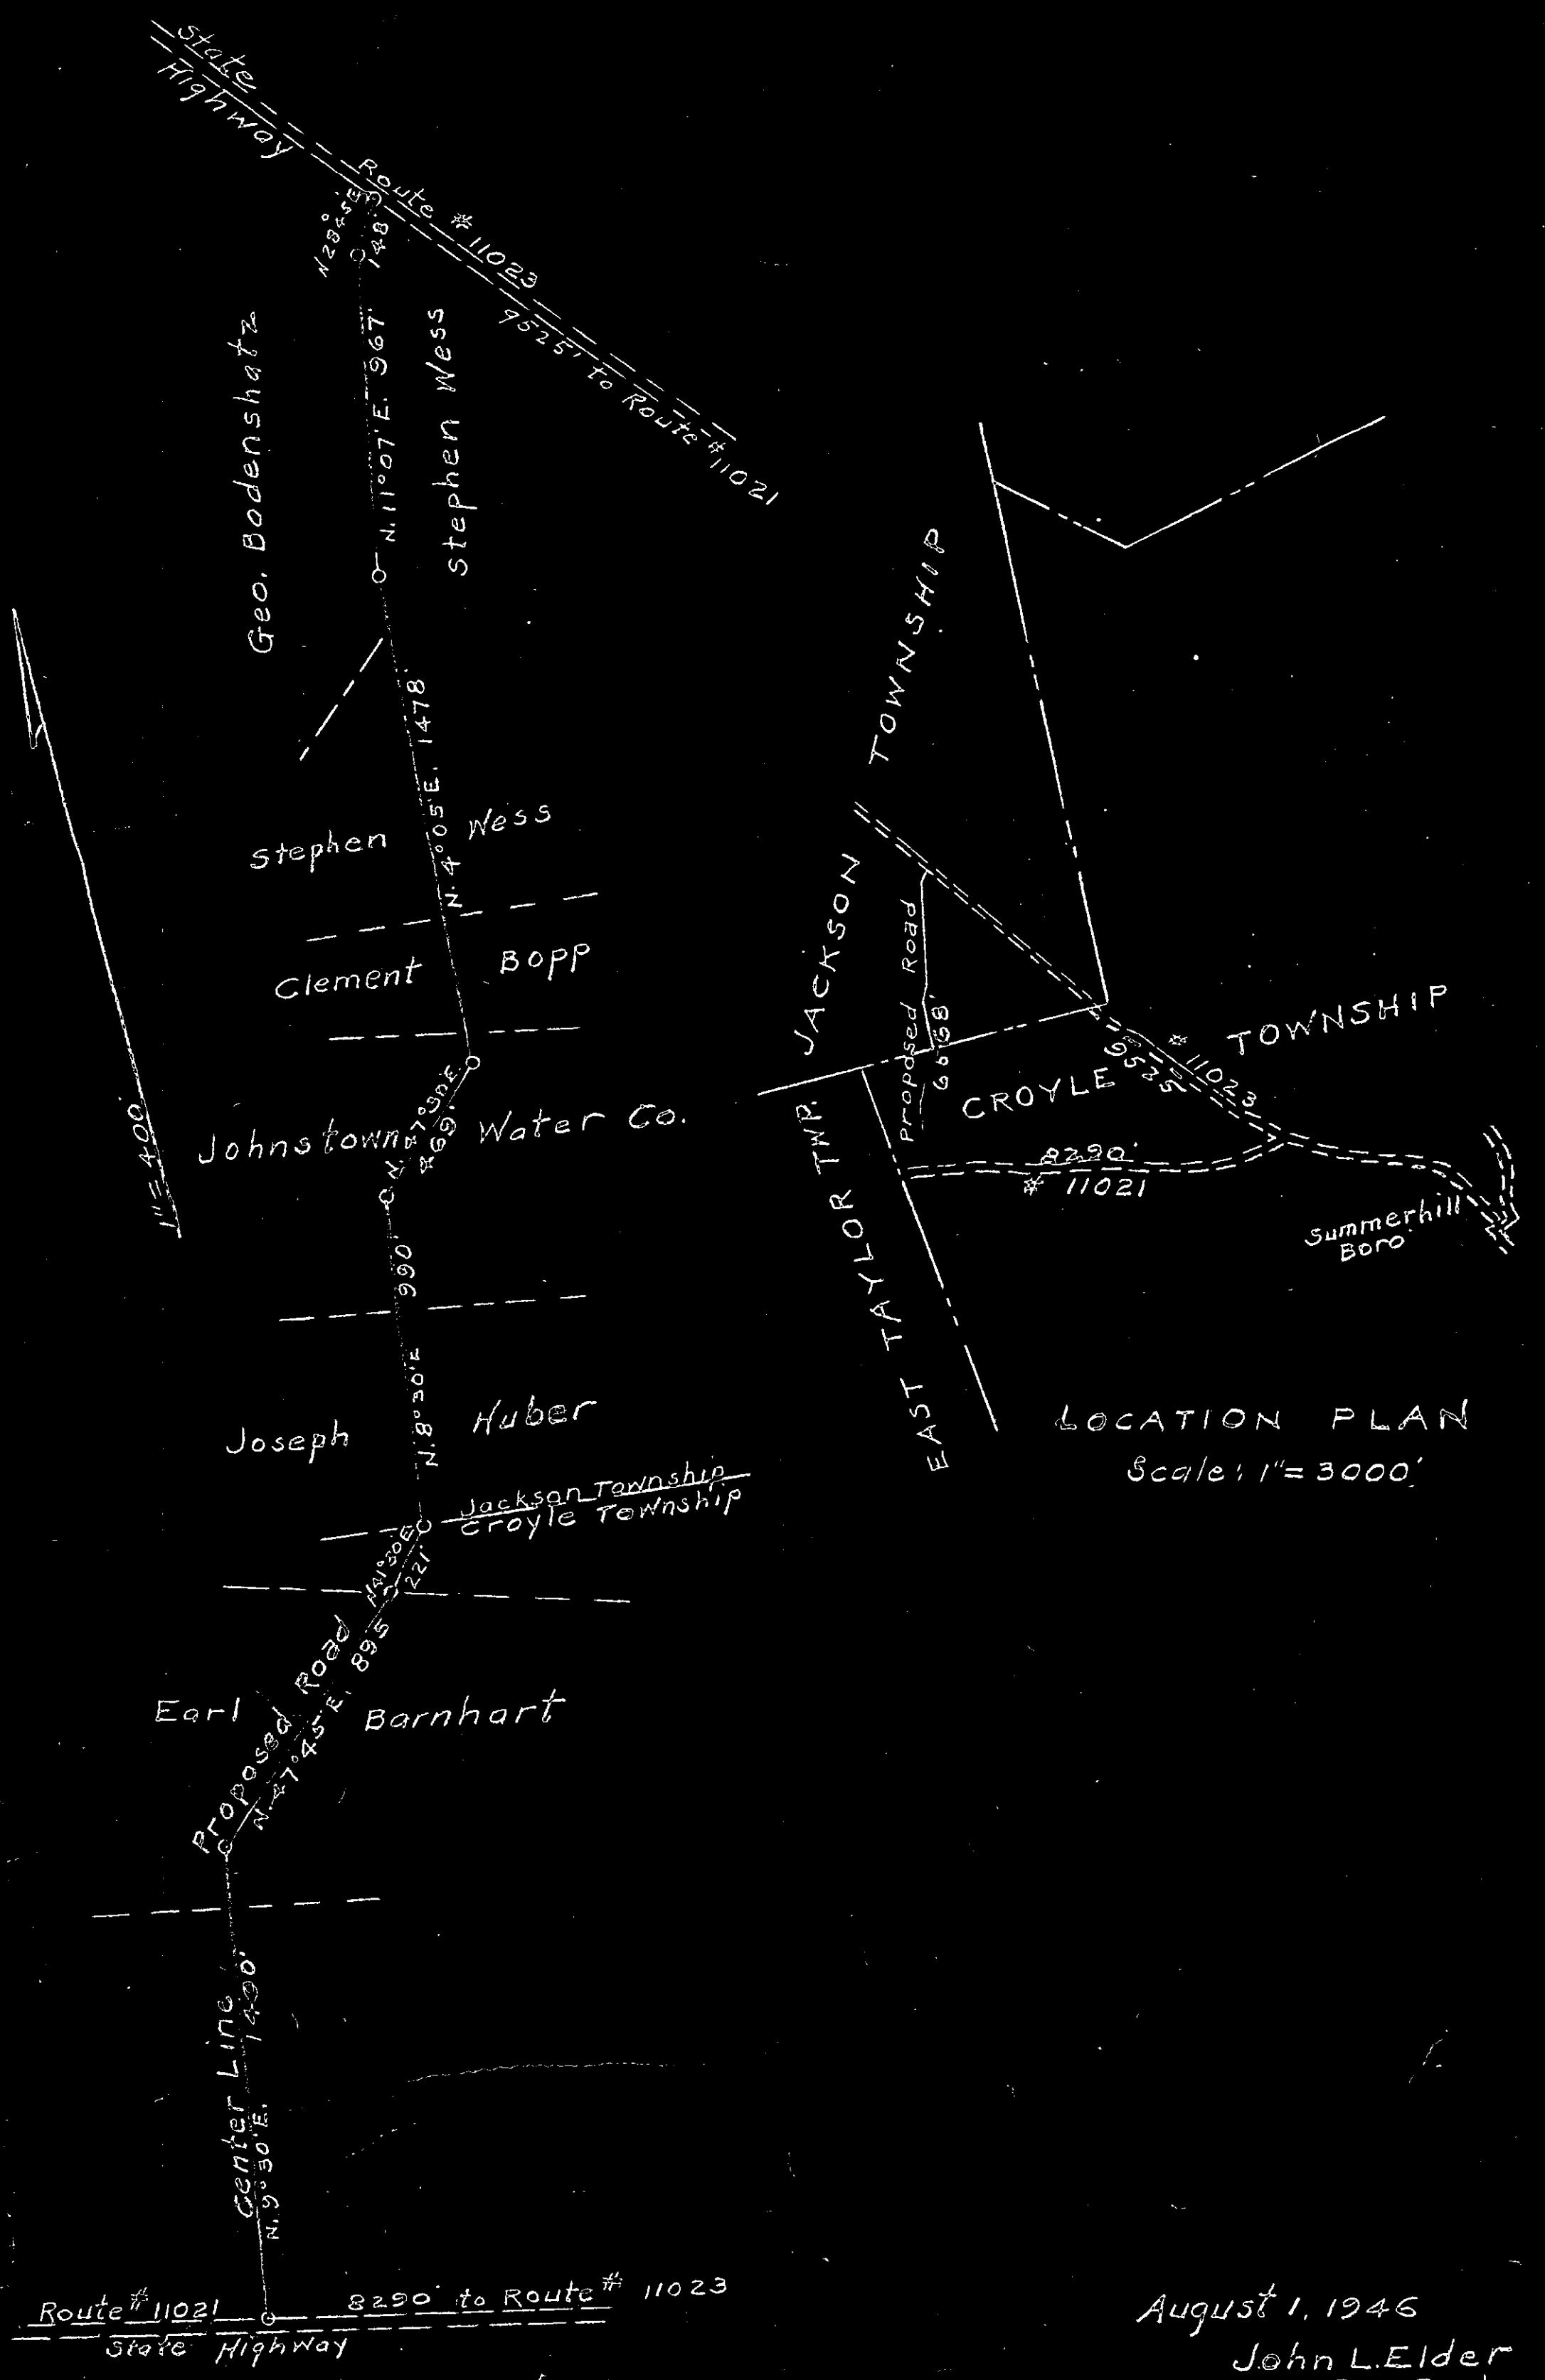 State
Highway
Route # 11023
9525' to Route # 11021
N 28°45' E
148'
Geo. Bodenshatz
N. 11°07' E. 967'
Stephen Wess
N. 4°05' E. 1478'
Stephen Wess
Clement Bopp
N. 47°30' E.
469'
Johnstown Water Co.
1" = 400'
990'
N. 8°30' E
Joseph Huber
Jackson Township
Croyle Township
N 41°30' E
221'
Proposed Road
N. 47°45' E. 895
Earl Barnhart
Center Line
N. 9°30' E. 1400'
Route # 11021
8290' to Route # 11023
State Highway
JACKSON TOWNSHIP
Proposed Road
6668'
CROYLE TOWNSHIP
# 11023
9525'
8290'
# 11021
EAST TAYLOR TWP.
Summerhill
Boro.
LOCATION PLAN
Scale: 1" = 3000'
August 1, 1946
John L. Elder